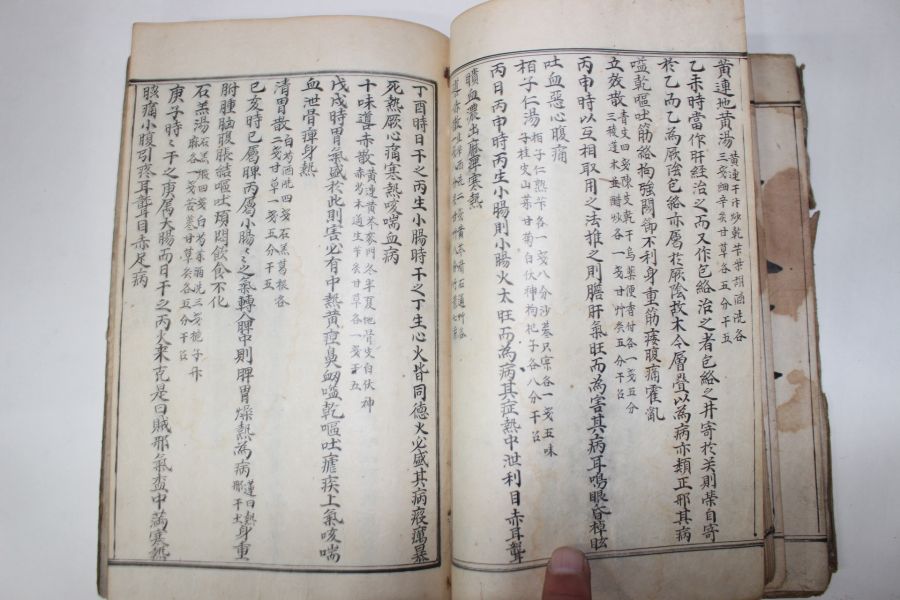 黃連地黃湯 黃連干汁炒乾芐柴胡酒洗各
三戔細辛炙甘草各五分干五
乙未時當作肝經治之而又作包絡治之者包絡之井寄於关則榮自寄
於乙而乙為厥陰包絡亦屬於厥陰故木令層疊以為病亦類正邪其病
嗌乾嘔吐筋絡拘強関節不利身重筋痿腹痛霍亂
立效散 青皮四戔陳皮乾干烏藥便香附各一戔五分
三稜蓬朮並醋炒各一戔甘艸炙五分干召
丙申時以互相取用之法推之則膽肝氣旺而為害其病耳鳴眼昏掉眩
吐血惡心腹痛
栢子仁湯 栢子仁熟芐各一戔八分沙參只宗各一戔五味
子桂支山葉甘菊白伏神枸杞子各八分干召
丙日丙申時丙生小腸則小腸火太旺而為病其症熱中泄利目赤耳聾
膿血濃出麻痺寒熱
導赤散
丁酉時日干之丙生小腸時干之丁生心火皆同德火必盛其病疫癘暴
死熱厥心痛寒熱咳喘血病
十味導赤散 黃連黃芩麥門冬半夏地骨皮白伏神
赤芍木通生芐炙甘草各一戔干五
戊戌時胃氣盛於此則害必有中熱黃疸鼻衄嗌乾嘔吐瘧疾上氣咳喘
血泄骨痺身熱
清胃散 白芍酒洗四戔石羔葛根各
二戔甘草一戔五分干
己亥時己屬脾丙屬小腸〻之氣轉入脾中則脾胃燥熱為病 身重
胕腫胸腹脹結嘔吐煩悶飮食不化
石羔湯 石羔煆四戔白芍酒洗三戔梔子炒
麻各一戔苦參甘草炙各五分干召
庚子時〻干之庚屬大腸而日干之丙火來克是曰賊邪氣盃中滿寒熱
咳痛小腹引疼耳聾目赤足病